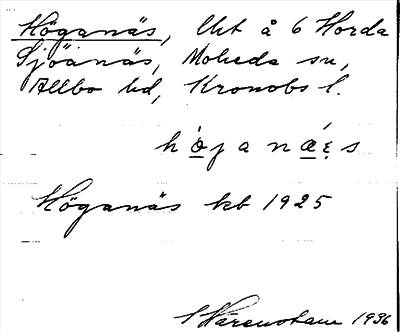 Höganäs, Uht å 6 Horda
Sjöänäs, Moheda sn,
Allbo hd, Kronobs l.
höjanäs
Höganäs kb 1925
Härenstam 1936